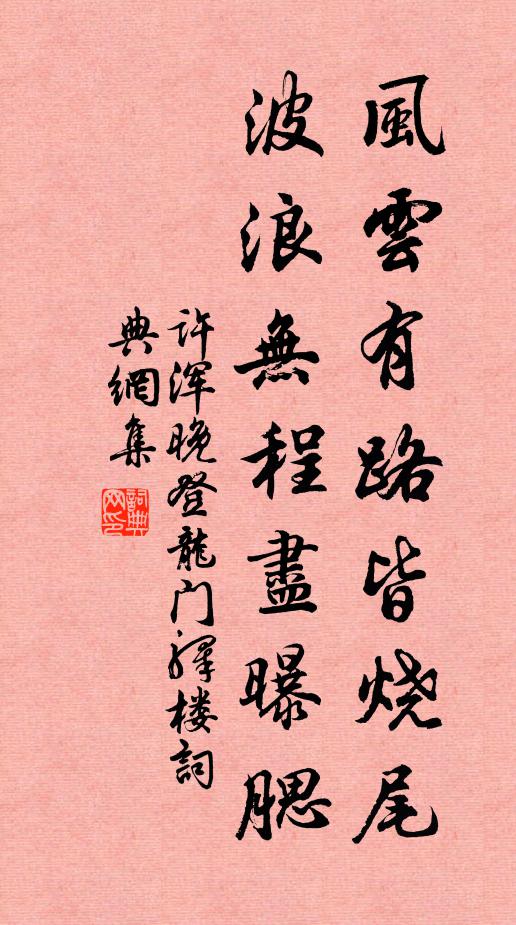 風雲有路皆燒尾
波浪無程盡曝腮
许渾晚登龍门驛楼詞
典網集
詞典
网印